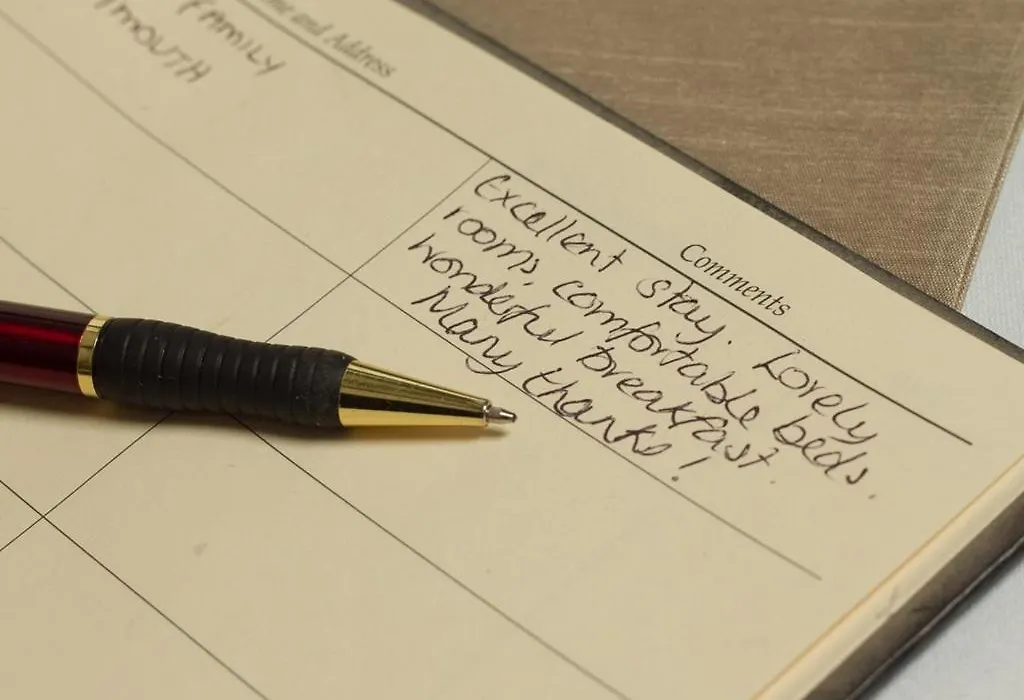 and Address
FAMILY
Comments
Excellent stay. Lovely
rooms, comfortable beds.
wonderful breakfast.
Many thanks!